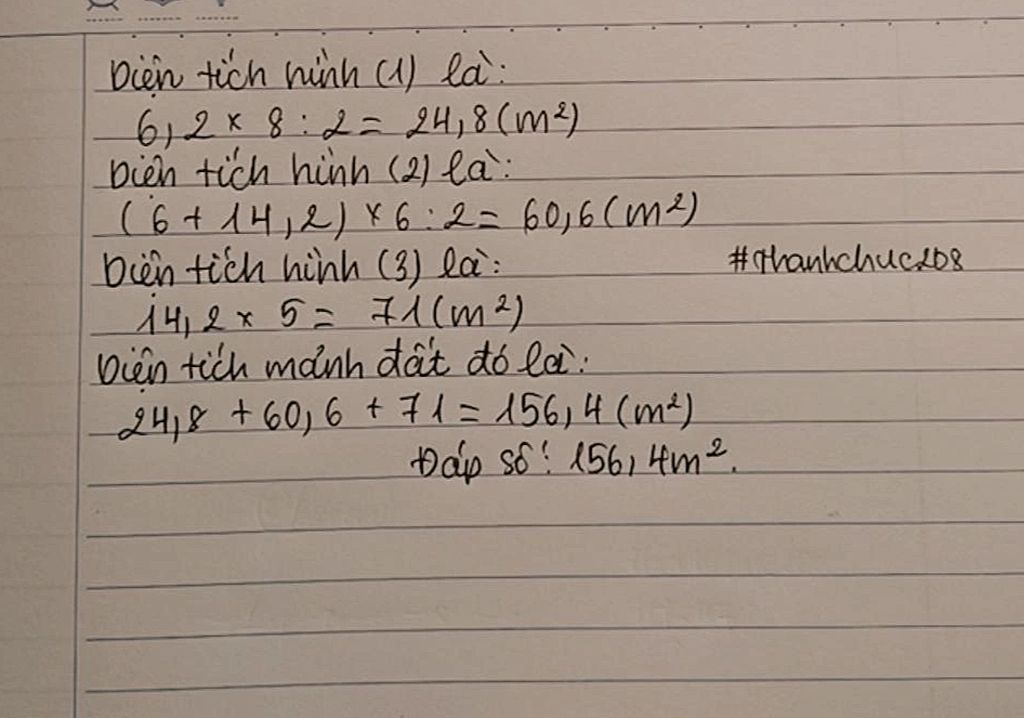 Diện tích hình (1) là:
6,2 × 8 : 2 = 24,8 (m²)
Diện tích hình (2) là:
(6 + 14,2) × 6 : 2 = 60,6 (m²)
Diện tích hình (3) là:
#thanhchuc208
14,2 × 5 = 71 (m²)
Diện tích mảnh đất đó là:
24,8 + 60,6 + 71 = 156,4 (m²)
Đáp số: 156,4m².